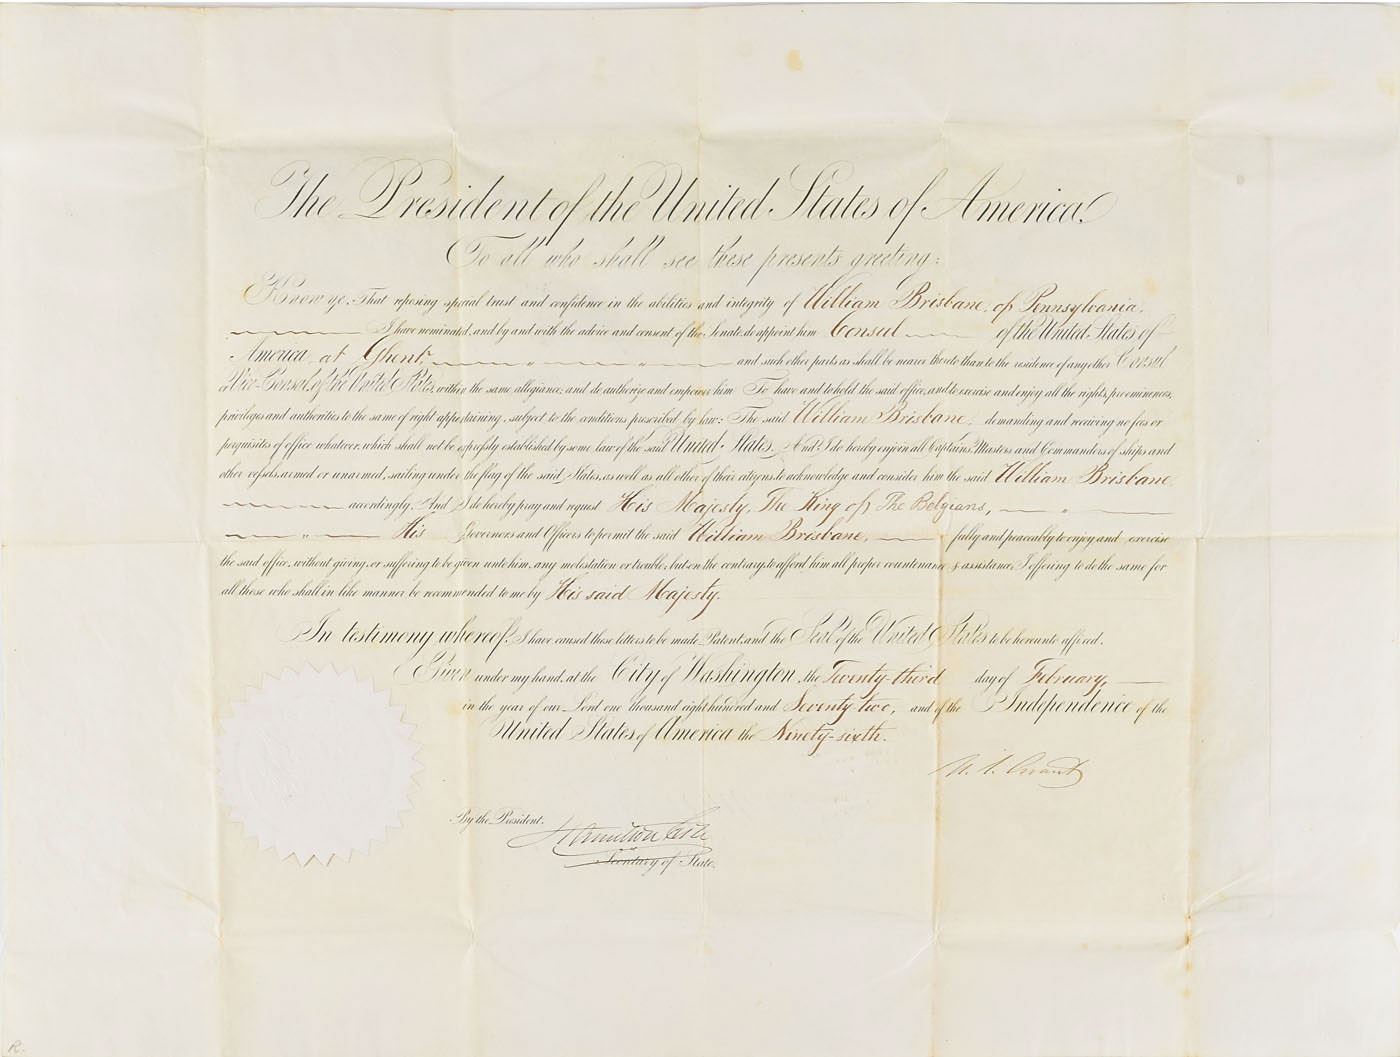 The President of the United States of America.
To all who shall see these presents greeting:
Know ye, That reposing special trust and confidence in the abilities and integrity of William Brisbane, of Pennsylvania,
I have nominated, and by and with the advice and consent of the Senate, do appoint him Consul of the United States of
America, at Ghent and such other parts as shall be nearer thereto than to the residence of any other Consul
or Vice-Consul of the United States, within the same allegiance; and do authorize and empower him To have and to hold the said office, and to exercise and enjoy all the rights, preeminences,
privileges and authorities to the same of right appertaining, subject to the conditions prescribed by law: The said William Brisbane, demanding and receiving no fees or
perquisites of office whatever, which shall not be expressly established by some law of the said United States. And I do hereby enjoin all Captains, Masters and Commanders of ships and
other vessels, armed or unarmed, sailing under the flag of the said States, as well as all other of their citizens, to acknowledge and consider him the said William Brisbane
accordingly. And I do hereby pray and request His Majesty, The King of The Belgians,
His Governors and Officers to permit the said William Brisbane, fully and peaceably to enjoy and exercise
the said office, without giving, or suffering to be given unto him, any molestation or trouble, but on the contrary, to afford him all proper countenance & assistance; I offering to do the same for
all those who shall in like manner be recommended to me by His said Majesty.
In testimony whereof, I have caused these letters to be made Patent, and the Seal of the United States to be hereunto affixed.
Given under my hand, at the City of Washington, the Twenty-third day of February,
in the year of our Lord one thousand eight hundred and Seventy-two, and of the Independence of the
United States of America the Ninety-sixth.
U. S. Grant
By the President,
Hamilton Fish
Secretary of State.
R.